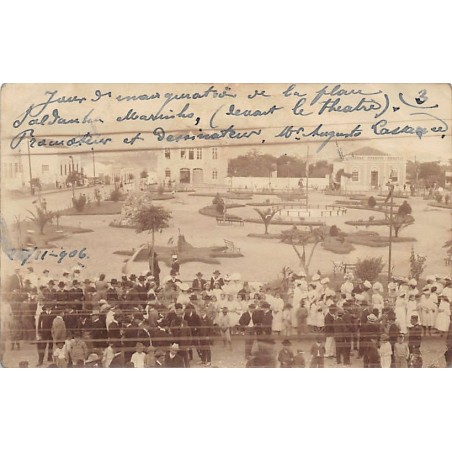 Jour d'inauguration de la place 3
Saldanha Marinho, (devant le theatre).
Promoteur et dessinateur, Mr Augusto
11 906